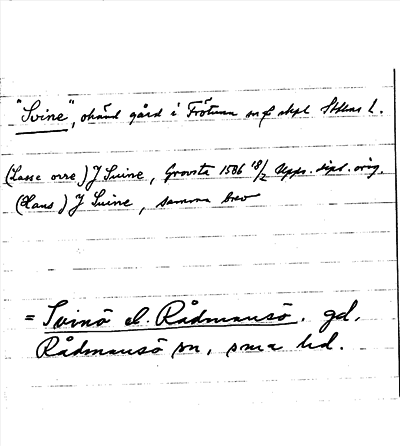 "Svine", okänd gård i Frötuna sn o skpl Sthlms l.
(Lasse orre) J Suine, Growsta 1586 18/2 Upps. dipl. orig.
(Hans) J Suine, samma brev
= Svinö el. Rådmansö, gd,
Rådmansö sn, sma hd.